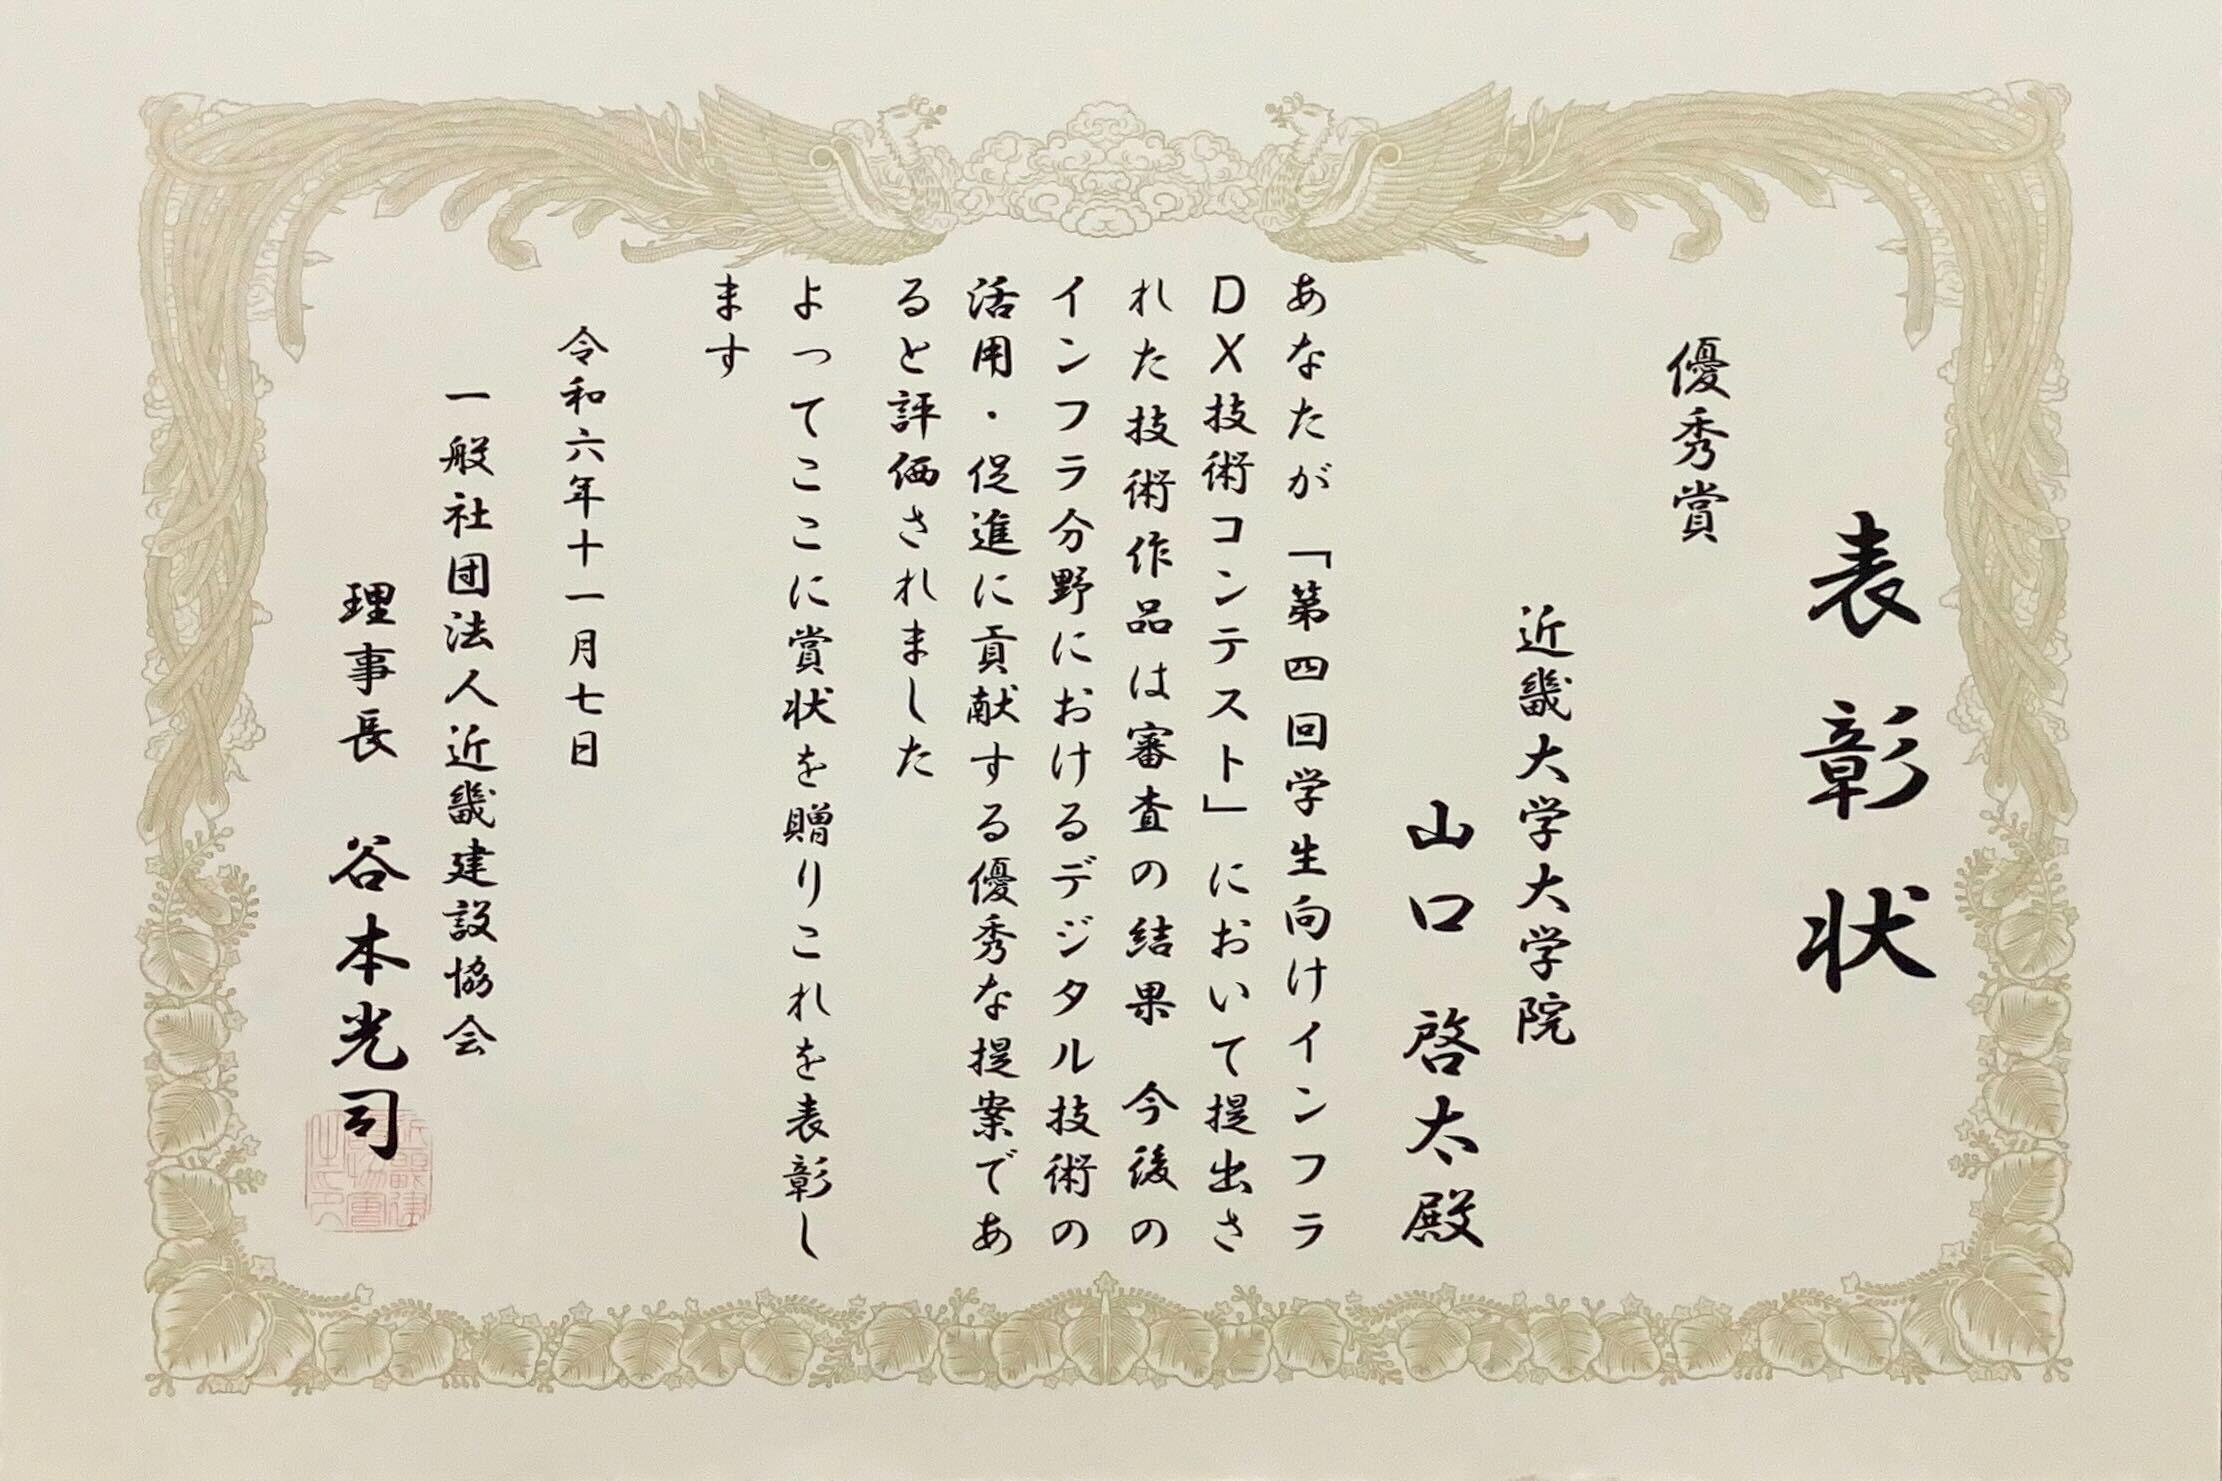 表彰状
優秀賞
近畿大学大学院
山口 啓太殿
あなたが「第四回学生向けインフラ
DX技術コンテスト」において提出さ
れた技術作品は審査の結果 今後の
インフラ分野におけるデジタル技術の
活用・促進に貢献する優秀な提案であ
ると評価されました
よってここに賞状を贈りこれを表彰し
ます
令和六年十一月七日
一般社団法人近畿建設協会
理事長 谷本光司